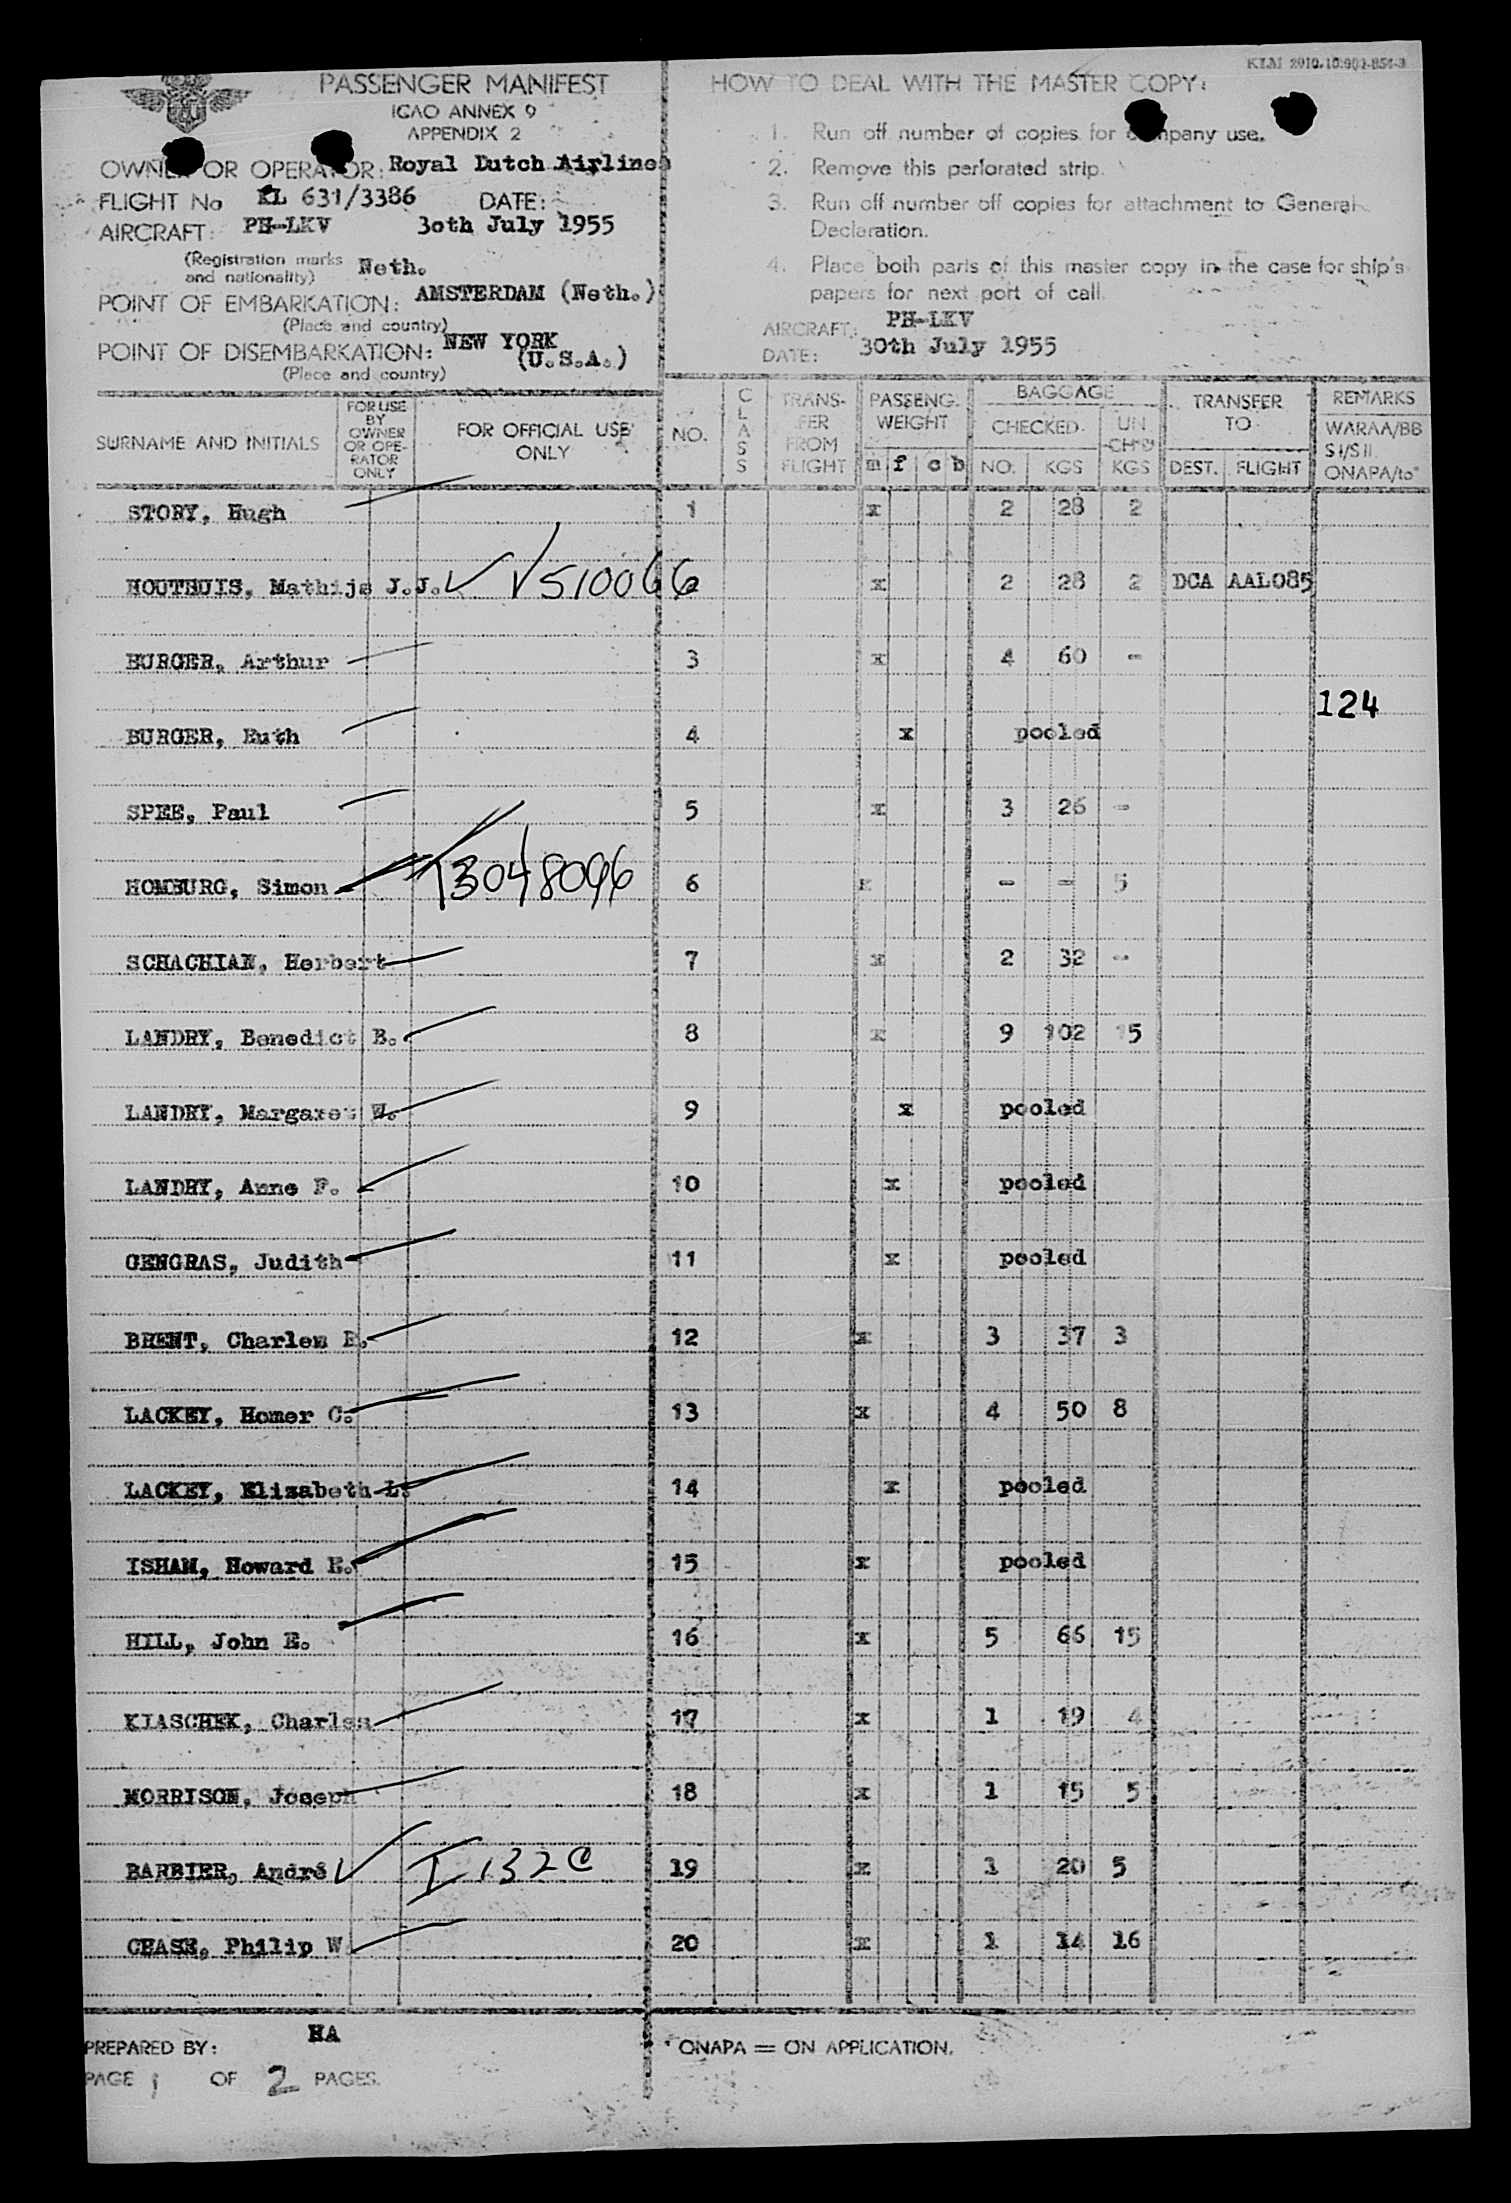 KLM 2910.10.902-854-3
PASSENGER MANIFEST
ICAO ANNEX 9
APPENDIX 2
OWNER OR OPERATOR: Royal Dutch Airlines
FLIGHT No KL 631/3386 DATE:
AIRCRAFT: PH-LKV 30th July 1955
(Registration marks and nationality) Neth.
POINT OF EMBARKATION: AMSTERDAM (Neth.)
(Place and country)
POINT OF DISEMBARKATION: NEW YORK (U.S.A.)
(Place and country)
HOW TO DEAL WITH THE MASTER COPY:
1. Run off number of copies for company use.
2. Remove this perforated strip.
3. Run off number off copies for attachment to General
Declaration.
4. Place both parts of this master copy in the case for ship's
papers for next port of call.
AIRCRAFT: PH-LKV
DATE: 30th July 1955
SURNAME AND INITIALS FOR USE BY OWNER OR OPE-RATOR ONLY FOR OFFICIAL USE ONLY NO. CLASS TRANS-FER FROM FLIGHT PASSENG. WEIGHT m f c b BAGGAGE CHECKED NO. KGS UN-CH'D KGS TRANSFER TO DEST. FLIGHT REMARKS WARAA/BB SI/SII ONAPA/to*
STORY, Hugh 1 x 2 28 2
HOUTHUIS, Mathijs J.J. V510066 x 2 28 2 DCA AAL085
BURGER, Arthur 3 x 4 60 -
124
BURGER, Ruth 4 x pooled
SPEE, Paul 5 x 3 26 -
HOMBURG, Simon T3048096 6 x - - 5
SCHACHIAN, Herbert 7 x 2 32 -
LANDRY, Benedict B. 8 x 9 102 15
LANDRY, Margaret W. 9 x pooled
LANDRY, Anne F. 10 x pooled
GENGRAS, Judith 11 x pooled
BRENT, Charles 12 x 3 37 3
LACKEY, Homer C. 13 x 4 50 8
LACKEY, Elizabeth L. 14 x pooled
ISHAM, Howard E. 15 x pooled
HILL, John E. 16 x 5 66 15
KIASCHEK, Charles 17 x 1 19 4
MORRISON, Joseph 18 x 1 15 5
BARBIER, André I 132 C 19 x 1 20 5
CEASE, Philip W 20 x 1 14 16
PREPARED BY: HA
* ONAPA = ON APPLICATION.
PAGE 1 OF 2 PAGES.